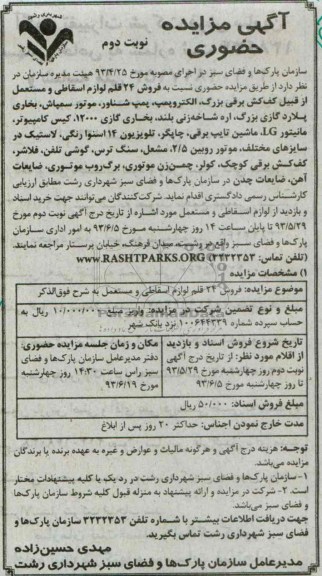 آگهی مزایده
حضوری
نوبت دوم
سازمان پارک‌ها و فضای سبز در اجرای مصوبه مورخ ۹۳/۴/۲۵ هیئت مدیره سازمان در
نظر دارد از طریق مزایده حضوری نسبت به فروش ۲۴ قلم لوازم اسقاطی و مستعمل
از قبیل کف‌کش برقی بزرگ، الکتروپمپ، پمپ شناور، موتور سمپاش، بخاری
پلارد گازی بزرگ، اره شاخه‌زنی بلند، بخاری گازی ۱۲۰۰۰، کیس کامپیوتر،
مانیتور LG، ماشین تایپ برقی، چاپگر، تلویزیون ۱۴ اسنوا رنگی، لاستیک در
سایزهای مختلف، موتور روبین ۲/۵، مشعل، سنگ ترس، گوشی تلفن، فلاشر،
کف‌کش برقی کوچک، کولر، چمن‌زن موتوری، برگ‌روب موتوری، ضایعات
آهن، ضایعات چدن در سازمان پارک‌ها و فضای سبز شهرداری رشت مطابق ارزیابی
کارشناس رسمی دادگستری اقدام نماید. شرکت‌کنندگان می‌توانند جهت خرید اسناد
و بازدید از لوازم اسقاطی و مستعمل مورد اشاره از تاریخ درج آگهی نوبت دوم مورخ
۹۳/۵/۲۹ تا پایان ساعت ۱۴ روز چهارشنبه مورخ ۹۳/۶/۵ به امور اداری سازمان
پارک‌ها و فضای سبز واقع در رشت، میدان فرهنگ، خیابان پرستار مراجعه نمایند.
(تلفن تماس: ۳۲۲۲۳۵۳) WWW.RASHTPARKS.ORG
۱) مشخصات مزایده
موضوع مزایده: فروش ۲۴ قلم لوازم اسقاطی و مستعمل به شرح فوق‌الذکر
مبلغ و نوع تضمین شرکت در مزایده: واریز مبلغ ۱۰/۰۰۰/۰۰۰ ریال به
حساب سپرده شماره ۱۰۰۶۴۴۳۳۹ نزد بانک شهر
تاریخ شروع فروش اسناد و بازدید
از اقلام مورد نظر: از تاریخ درج آگهی
نوبت دوم روز چهارشنبه مورخ ۹۳/۵/۲۹
تا روز چهارشنبه مورخ ۹۳/۶/۵
مکان و زمان جلسه مزایده حضوری:
دفتر مدیرعامل سازمان پارک‌ها و فضای
سبز راس ساعت ۱۴:۳۰ روز چهارشنبه
مورخ ۹۳/۶/۱۹
مبلغ فروش اسناد: ۵۰/۰۰۰ ریال
مدت خارج نمودن اجناس: حداکثر ۲۰ روز پس از ابلاغ
توجه: هزینه درج آگهی و هرگونه مالیات و عوارض و غیره به عهده برنده یا برندگان
مزایده می‌باشد.
۱- سازمان پارک‌ها و فضای سبز شهرداری رشت در رد یک یا کلیه پیشنهادات مختار
است. ۲- شرکت در مزایده و ارائه پیشنهاد به منزله قبول کلیه شروط سازمان پارک‌ها
و فضای سبز می‌باشد.
جهت دریافت اطلاعات بیشتر با شماره تلفن ۳۲۲۲۳۵۳ سازمان پارک‌ها و
فضای سبز شهرداری رشت تماس بگیرید.
مهدی حسین‌زاده
مدیرعامل سازمان پارک‌ها و فضای سبز شهرداری رشت